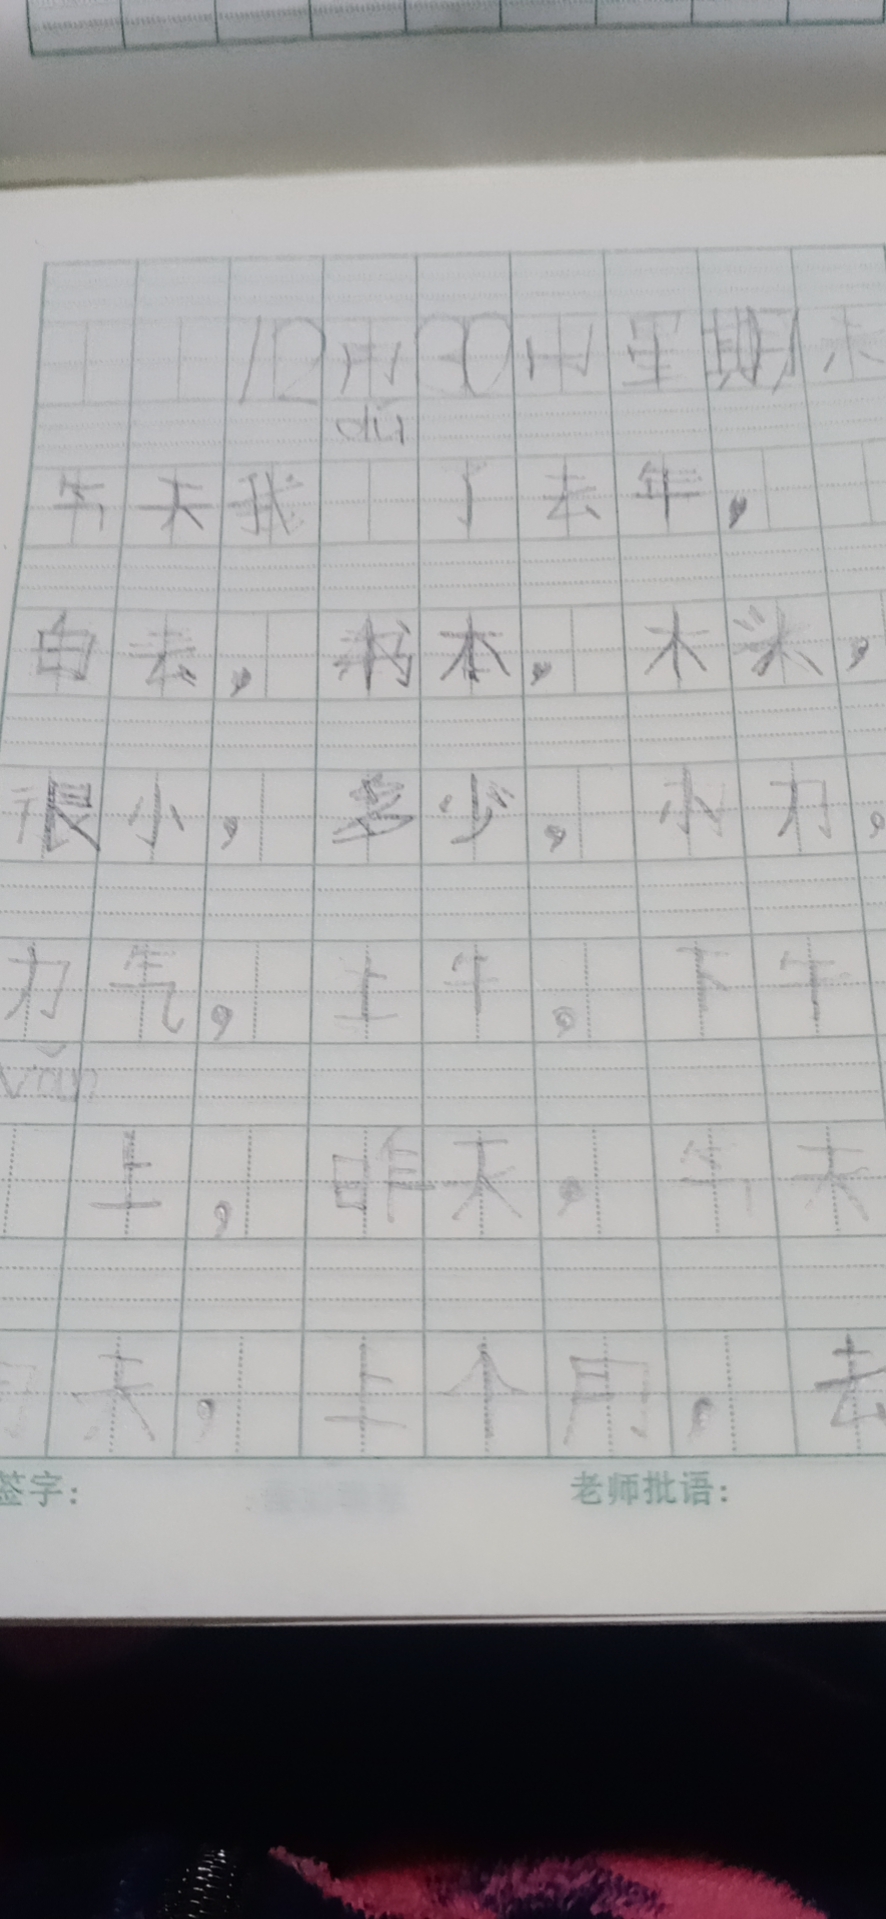 12月30日星期六
dú
今天我 了去年，
白去，书本，木米，
很小，多少，小力，
力气，上午。下午
土，昨天。今天
天，上个月，去
签字： 老师批语：